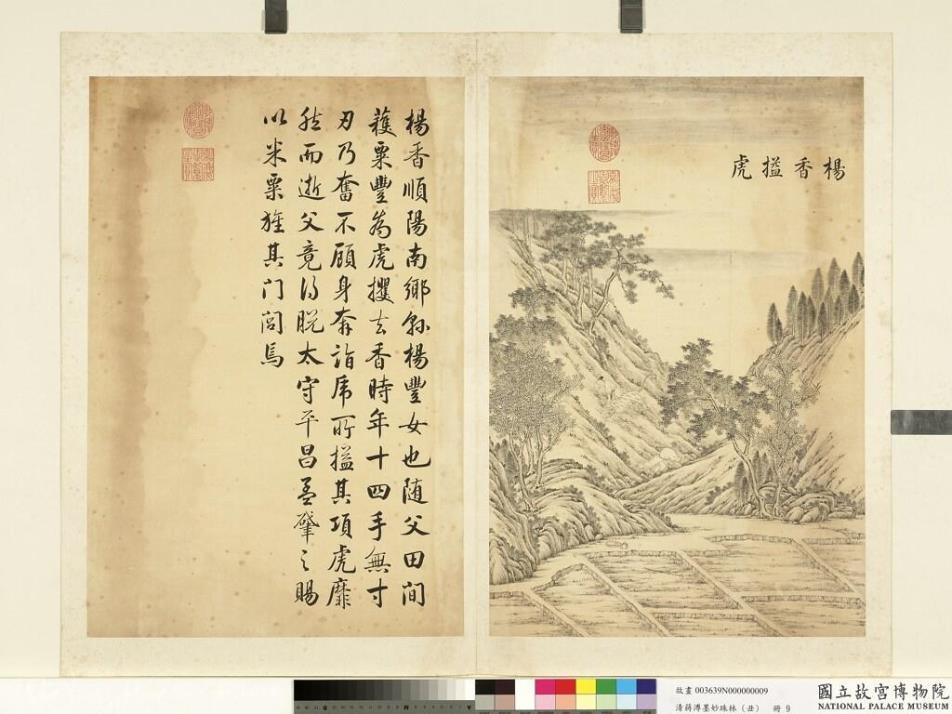 楊香搤虎
楊香順陽南鄉縣楊豐女也随父田間
穫粟豐為虎攫去香時年十四手無寸
刃乃奮不顧身奔詣虎所搤其項虎靡
然而逝父竟得脫太守平昌孟肇之賜
以米粟旌其门闾焉
故畫 003639N000000009
清蔣溥墨妙珠林（丑） 冊 9
國立故宮博物院
NATIONAL PALACE MUSEUM